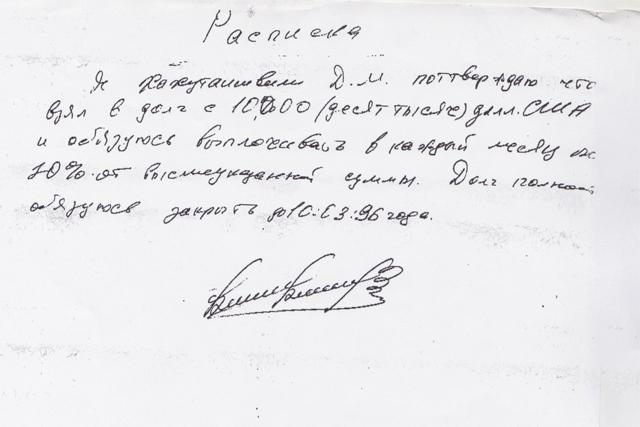 Расписка
Я Хахуташвили Д.М. потверждаю что
взял в долг с 10,000 (десят тысяч) долл. США
и обязуюсь в каждый месяц
10% от вышеуказанной суммы. Долг
обязуюсь закрыть до 10:03:96 года.